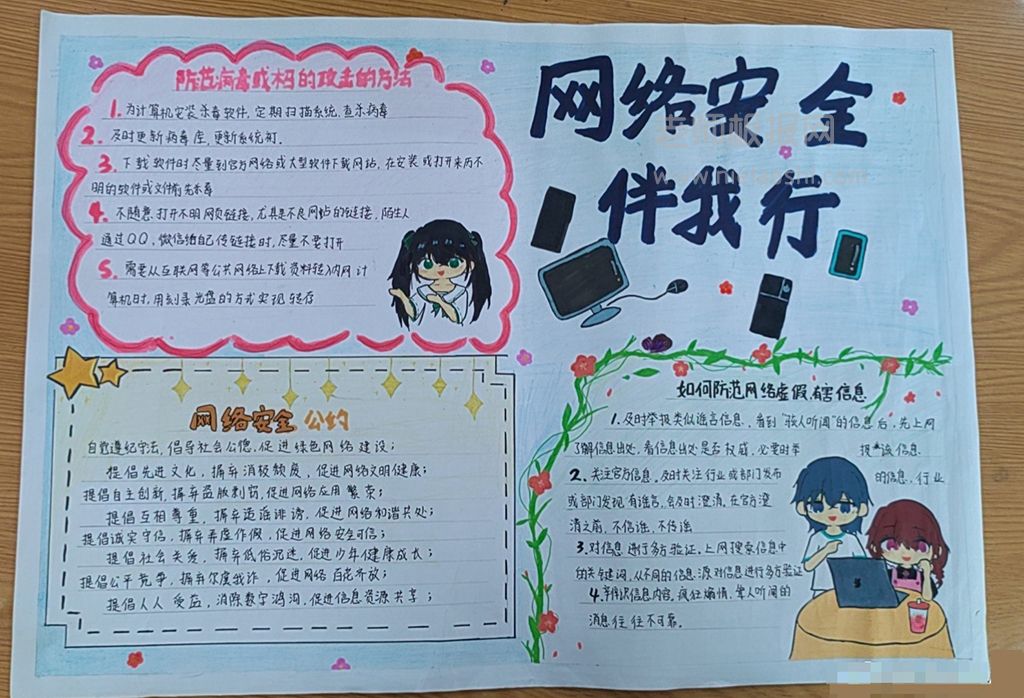 网络安全
伴我行
老师板报网
防范病毒或木马的攻击的方法
1.为计算机安装杀毒软件,定期扫描系统、查杀病毒
2.及时更新病毒库,更新系统
3.下载软件时尽量到官方网络或大型软件下载网站,在安装或打开来历不
明的软件或文件前先杀毒
4.不随意打开不明网页链接,尤其是不良网站的链接,陌生人
通过QQ,微信给自己传链接时,尽量不要打开
5.需要从互联网等公共网络上下载资料转入内网计
算机时,用刻录光盘的方式实现转存
网络安全公约
自觉遵纪守法,倡导社会公德,促进绿色网络建设;
提倡先进文化,摒弃消极颓废,促进网络文明健康;
提倡自主创新,摒弃盗版剽窃,促进网络应用繁荣;
提倡互相尊重,摒弃造谣诽谤,促进网络和谐共处;
提倡诚实守信,摒弃弄虚作假,促进网络安全可信;
提倡社会关爱,摒弃低俗沉迷,促进少年健康成长;
提倡公平竞争,摒弃尔虞我诈,促进网络百花齐放;
提倡人人受益,消除数字鸿沟,促进信息资源共享;
如何防范网络虚假、有害信息
1.及时举报类似谣言信息,看到“骇人听闻”的信息后,先上网
了解信息出处,看信息出处是否权威,必要时举报该信息
2.关注官方信息,及时关注行业或部门发布的信息,行业
或部门发现有谣言,会及时澄清,在官方澄
清之前,不信谣、不传谣
3.对信息进行多方验证,上网搜索信息中
的关键词,从不同的信息源对信息进行多方验证
4.辨识信息内容,疯狂煽情、耸人听闻的
消息往往不可靠。